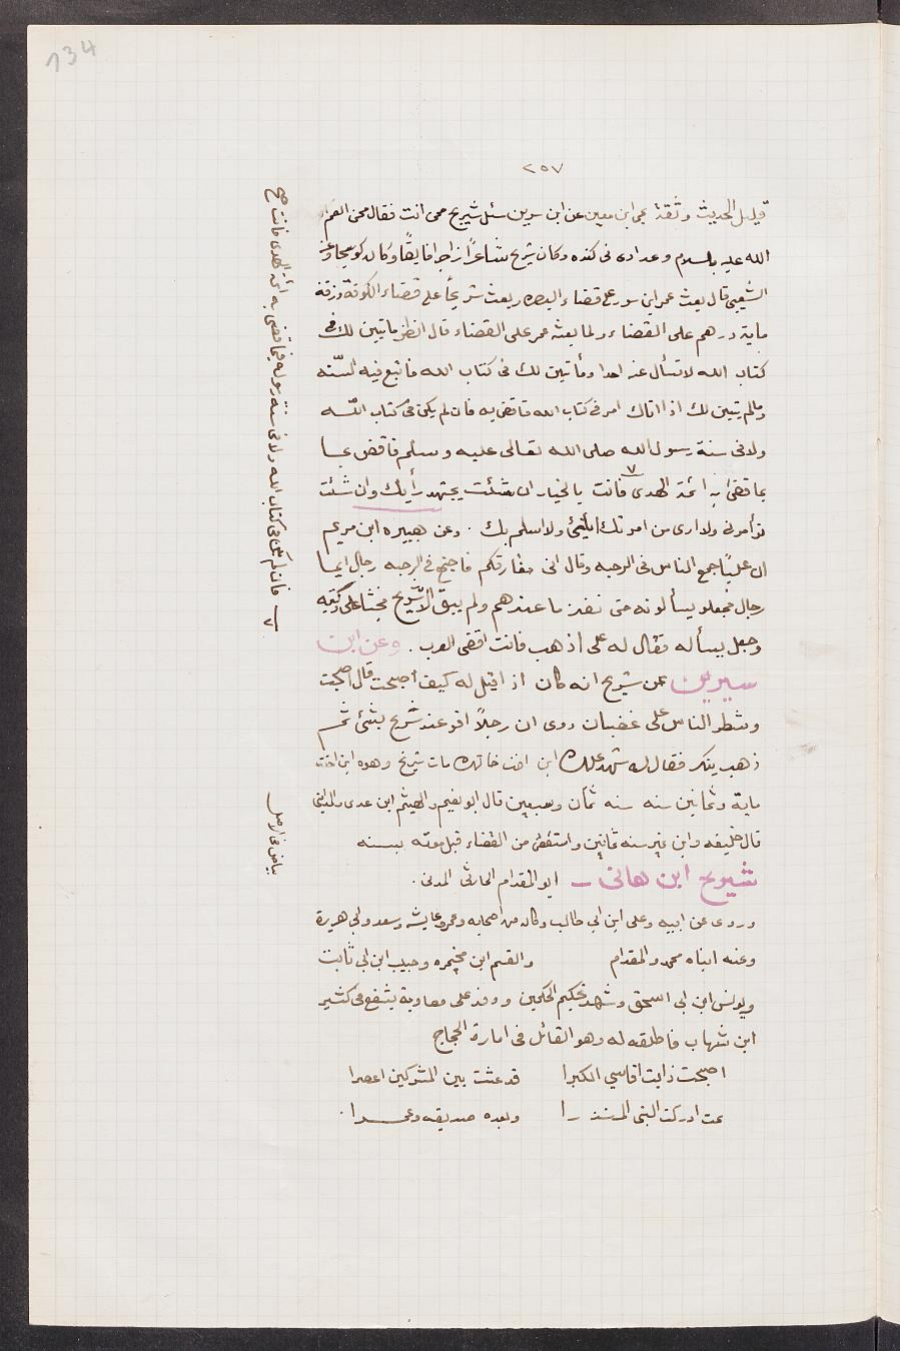 134
٢٥٧
قليل الحديث وثقة يحيى ابن معين عن ابن سيرين سئل شريح ممن انت فقال ممن انعم
الله عليه بالسلام وعدادى فى كنده وكان شريح شاعراً زاجرا قايفاً وكان كوسجا وعن
الشعبى قال بعث عمر ابن سور على قضاء البصره وبعث شريحاً على قضاء الكوفة ورزقه
ماية درهم على القضاء ولما بعثه عمر على القضاء قال انظر ما تبين لك فى
كتاب الله لا تسأل عنه احدا وما تبين لك فى كتاب الله فاتبع فيه السنّه
ومالم يتبين لك اذا اتاك امر فى كتاب الله فاقض به فان لم يكن فى كتاب الله
ولا فى سنة رسول الله صلى الله تعالى عليه وسلم فاقض بما
بما قضى به ائمة الهدى ٧ فانت بالخيار ان شئت تجتهد رأيك وان شئت
تؤامرنى ولا ارى من امرتك ولا اسلم بك . وعن هبيره ابن مريم
ان علياً جمع الناس فى الرحبه وقال انى مفارقكم فاجتمع فى الرحبه رجال ايما
رجال فجعلو يسألونه حتى نفذ ما عندهم ولم يبق الا شريح فجثا على ركبتيه
وجعل يسأله فقال له على اذهب فانت اقضى العرب . وعن ابن
سيرين عن شريح انه كان اذا قيل له كيف اصبحت قال اصبحت
وشطر الناس على غضبان روى ان رجلاً اقر عند شريح بشئ ثم
ذهب ينكر فقال له شهد عليك ابن اخت خالتك مات شريح وهو ابن
ماية وثمانين سنه سنه ثمان وسبعين قال ابو نعيم والهيثم ابن عدى والمدائنى
قال خليفه وابن نمير سنه ثمانين واستعفى من القضاء قبل موته بسنه
شريح ابن هانى ــ ابو المقدام الحارثى المدنى .
وروى عن ابيه وعلى ابن ابى طالب وكان من اصحابه وعمر وعايشه وسعد وابى هريرة
وعنه ابناه محمد والمقدام والقسم ابن مخيمره وحبيب ابن ابى ثابت
ويونس ابن ابى اسحق وشهد تحكيم الحكمين ووفد على معاوية يشفع فى كثير
ابن شهاب فاطلقه له وهو القائل فى امارة الحجاج
اصبحت ذا بث اقاسي الكبرا قد عشت بين المشركين اعصرا
ثمت ادركت النبى المنذرا وبعده صديقه وعمرا .
٧ فان لم يكن فى كتاب الله ولا فى سنة رسوله فيما قضى به ائمة الهدى فانت صح
بياض فى الاصل